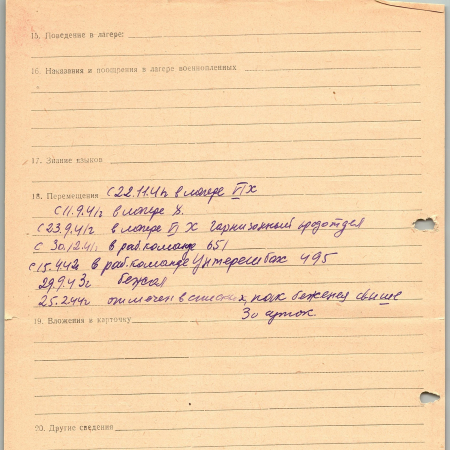 15. Поведение в лагере:
16. Наказания и поощрения в лагере военнопленных
17. Знание языков
18. Перемещения с 22.11.41г в лагере VI Х
с 11.9.41г в лагере X.
с 23.9.41г в лагере VI X гарнизонный
с 30.12.41г в раб. команде 651
с 15.4.42г в раб. команде Унтерешбах 495
29.9.43г бежал
25.2.44г отмечен в списках, как беженец свыше
19. Вложения в карточку
3х суток
20. Другие сведения